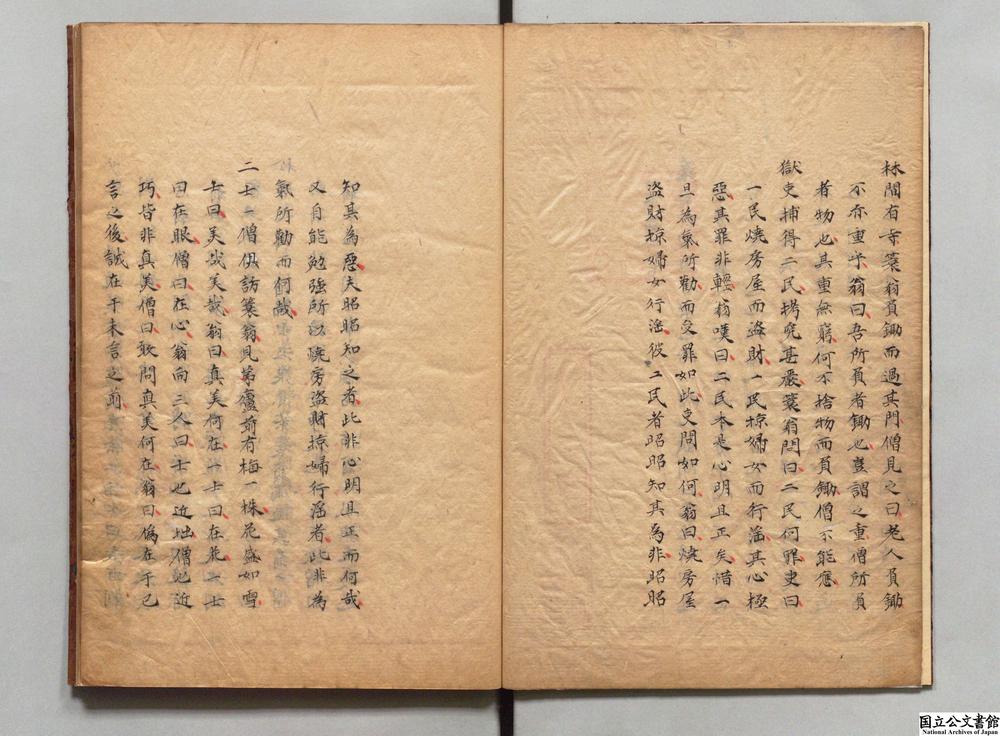 林間有寺蓑翁負鋤而過其門僧見之曰老人負鋤
不亦重乎翁曰吾所負者鋤也豈謂之重僧所負
者物也其重無窮何不捨物而負鋤僧不能應
獄吏捕得二民拷究甚嚴蓑翁問曰二民何罪吏曰
一民燒房屋而盜財一民掠婦女而行淫其心極
惡其罪非輕翁嘆曰二民本是心明且正矣惜一
旦為氣所勸而受罪如此吏問如何翁曰燒房屋
盜財掠婦女行淫彼二民者昭昭知其為非昭昭
知其為惡夫昭昭知之者此非心明且正而何哉
又自能勉強所以燒房盜財掠婦行淫者此非為
氣所勸而何哉
二士一僧俱訪蓑翁見茅廬前有梅一株花盛如雪
士曰美哉美哉翁曰真美何在一士曰在花一士
曰在眼僧曰在心翁向三人曰士也近拙僧也近
巧皆非真美僧曰敢問真美何在翁曰偽在于已
言之後誠在于未言之前
国立公文書館
National Archives of Japan